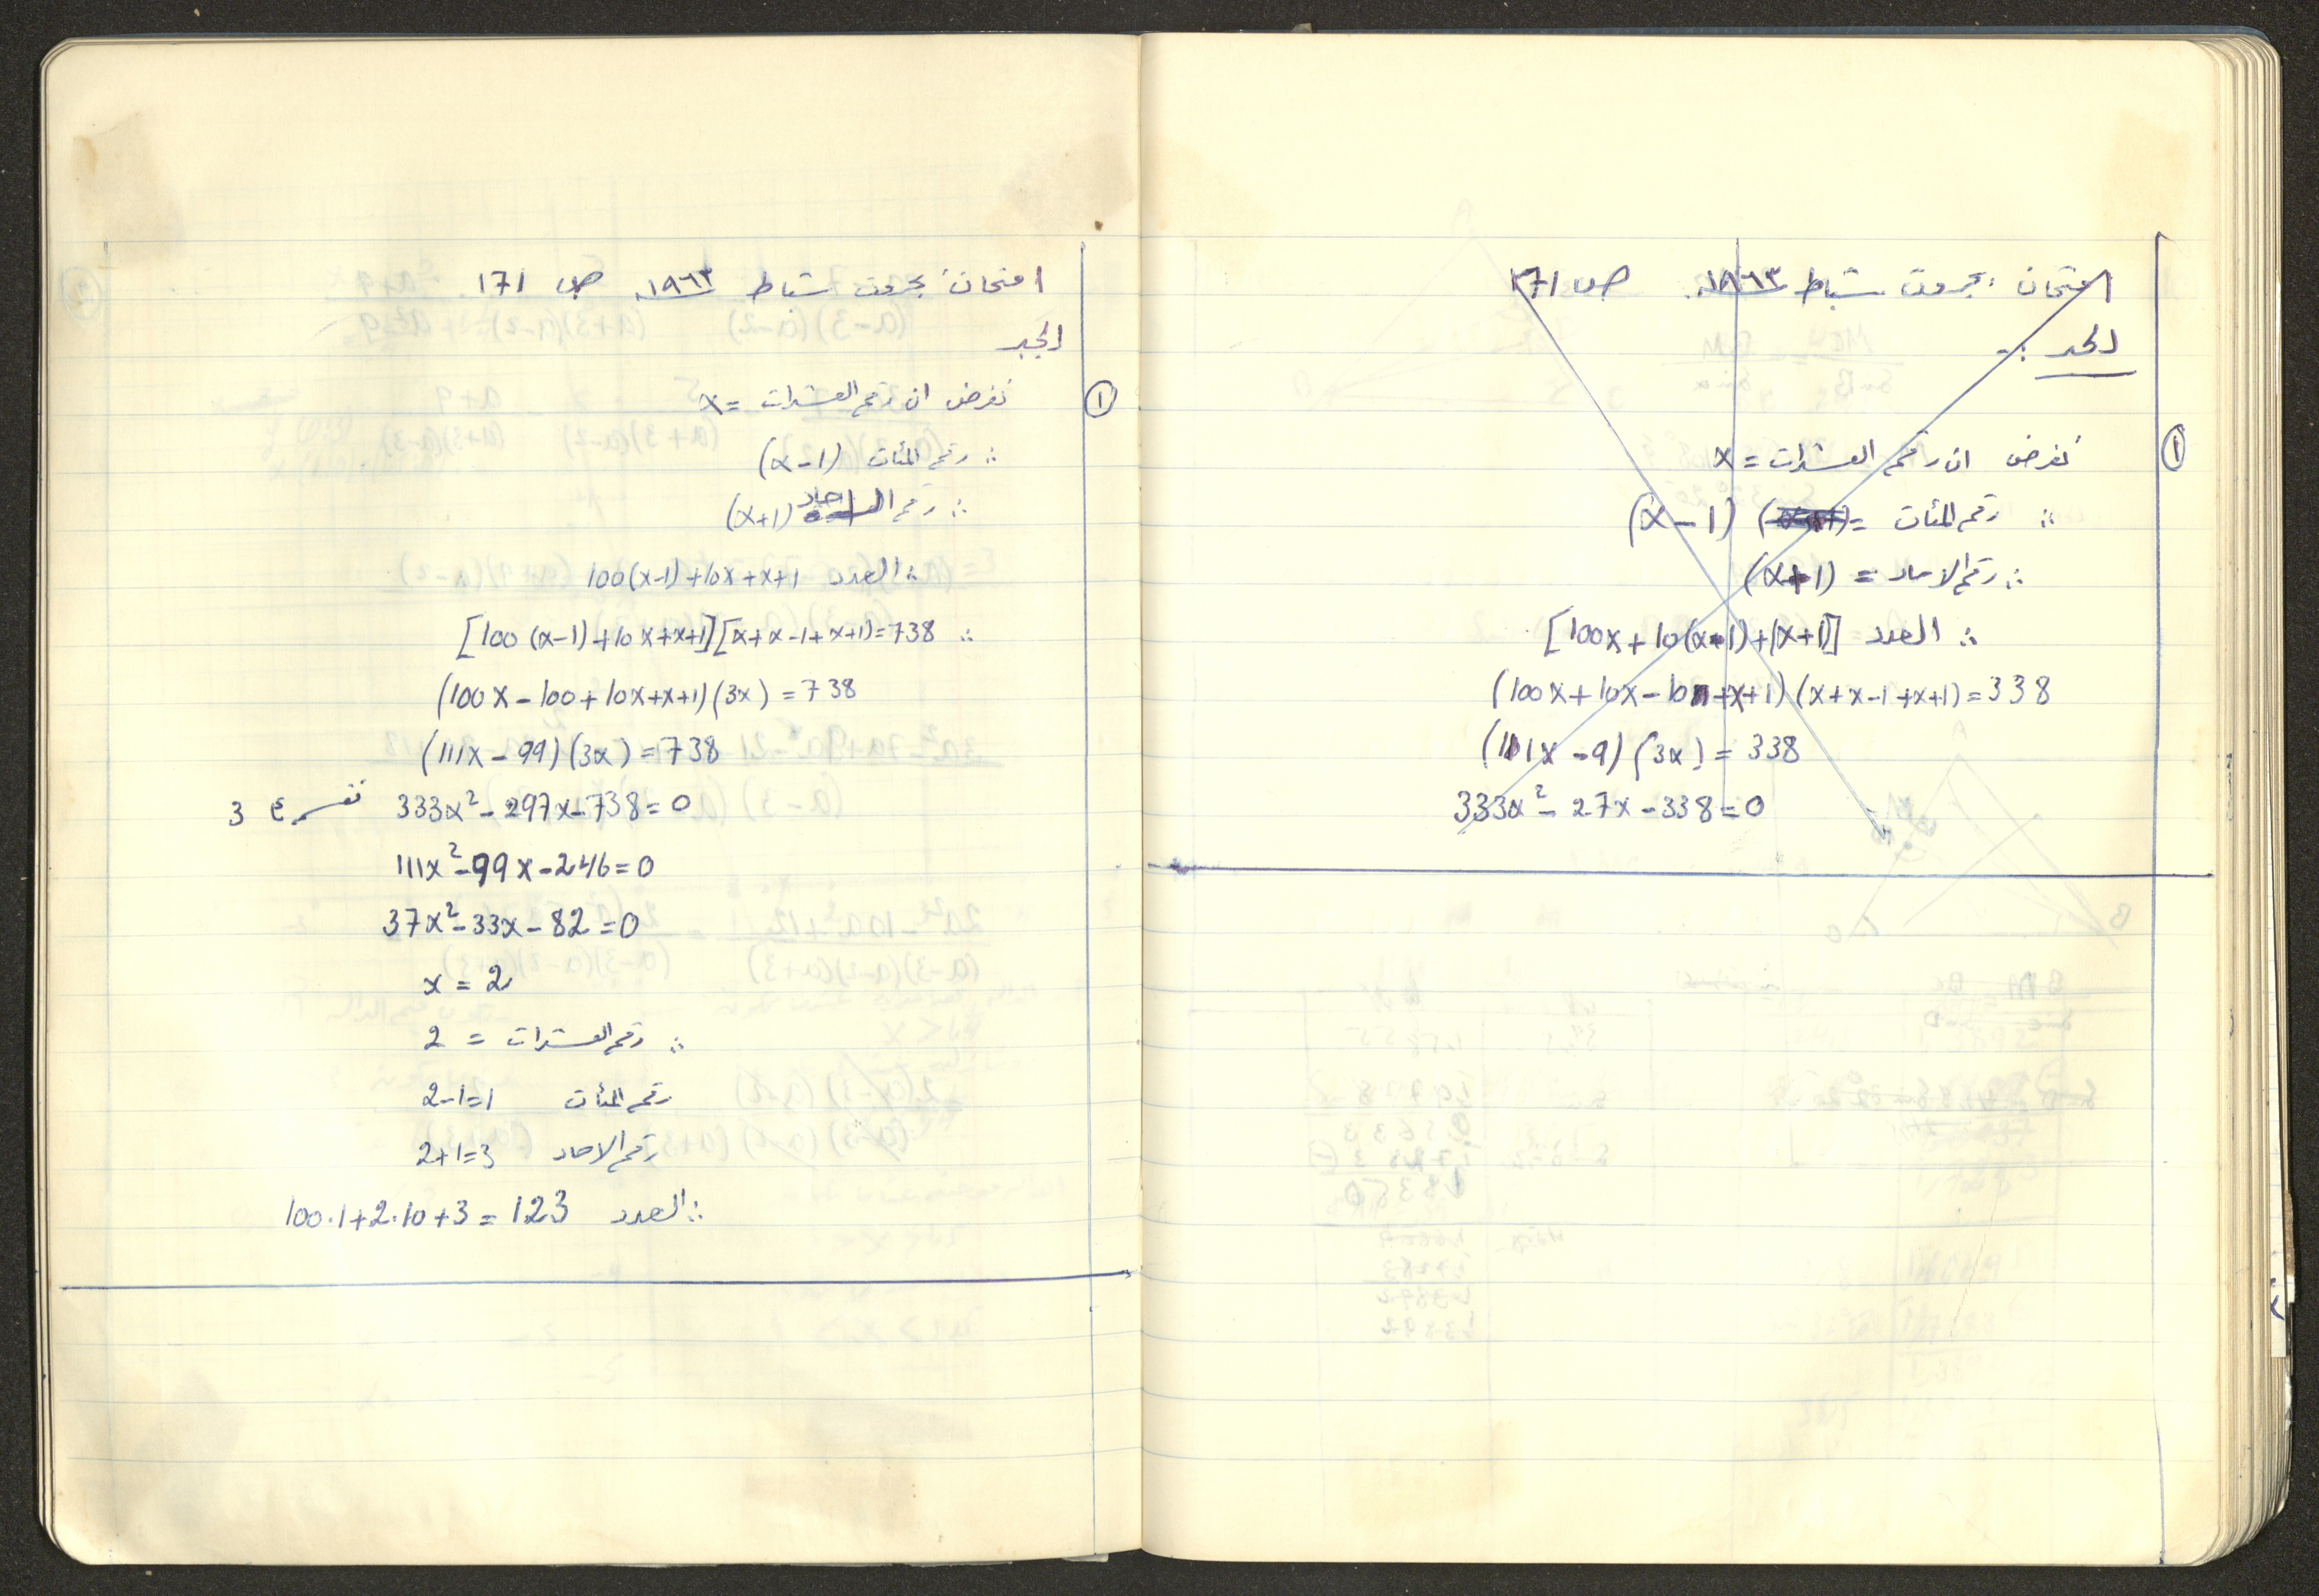 امتحان بجروت شباط ١٩٦٣ ص ١٧١
الجبر
①
نفرض ان رقم العشرات = x
∴ رقم المئات = (x-1)
∴ رقم الاحاد = (x+1)
∴ العدد [100x+10(x-1)+(x+1)]
(100x+10x-10+x+1)(x+x-1+x+1)=338
(111x-9)(3x)=338
333x²-27x-338=0
امتحان بجروت شباط ١٩٦٣ ص ١٧١
الجبر
①
نفرض ان رقم العشرات = x
∴ رقم المئات (x-1)
∴ رقم احاد (x+1)
∴ العدد 100(x-1)+10x+x+1
∴ [100(x-1)+10x+x+1][x+x-1+x+1]=738
(100x-100+10x+x+1)(3x)=738
(111x-99)(3x)=738
333x²-297x-738=0 نقسم ع 3
111x²-99x-246=0
37x²-33x-82=0
x=2
∴ رقم العشرات = 2
رقم المئات 2-1=1
رقم الاحاد 2+1=3
∴ العدد 100·1+2·10+3=123